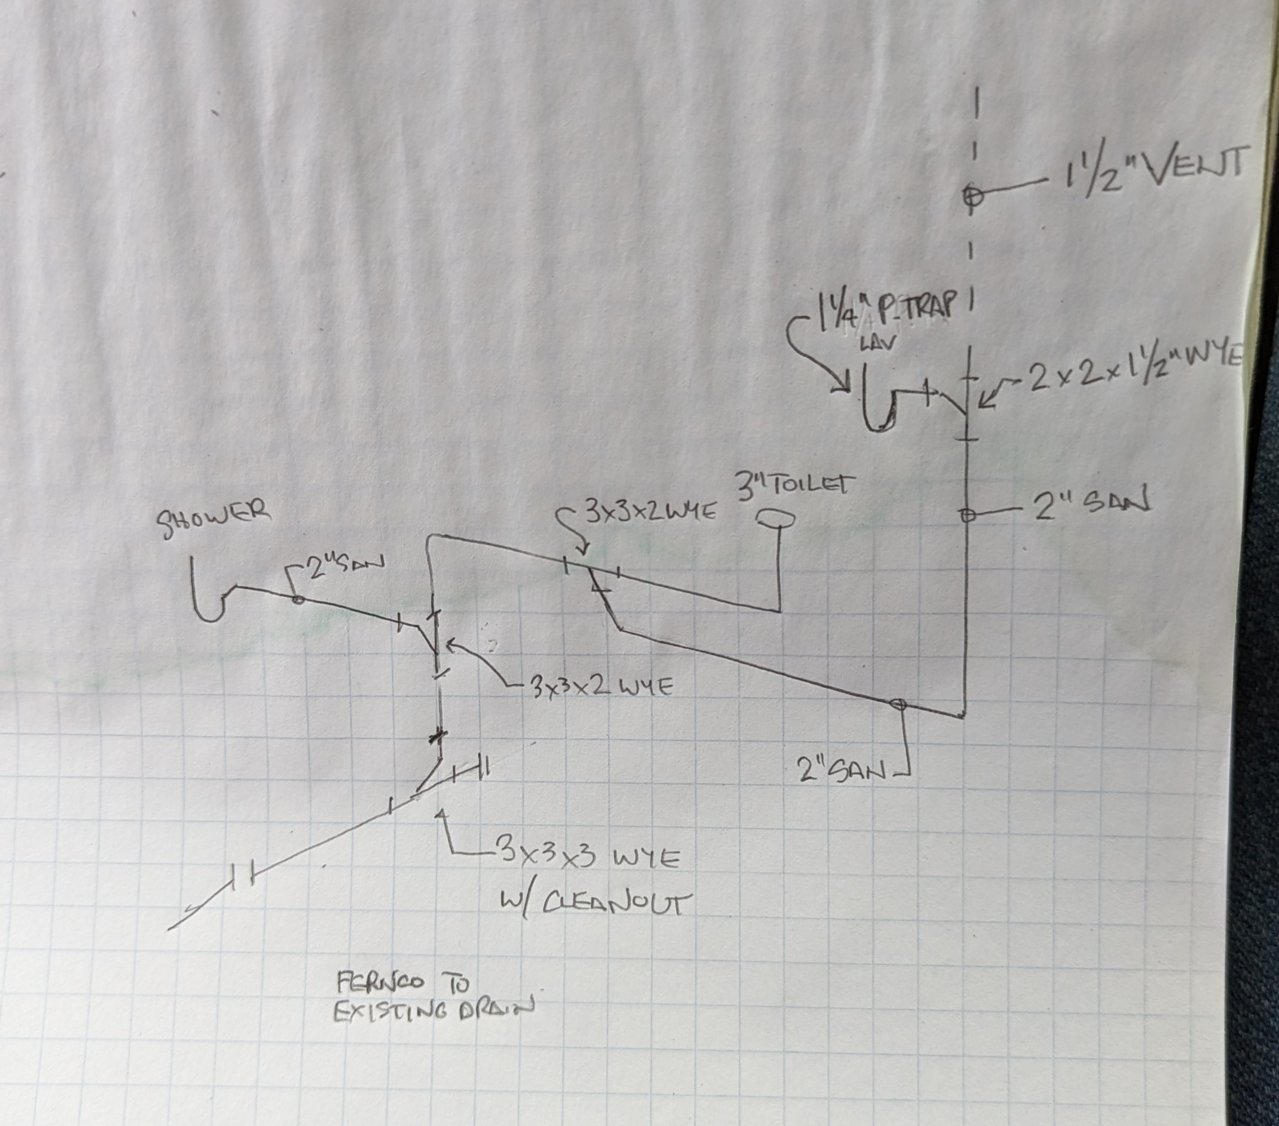 1½" VENT
1¼" P-TRAP
LAV
2x2x1½" WYE
3" TOILET
3x3x2 WYE
2" SAN
SHOWER
2" SAN
3x3x2 WYE
2" SAN
3x3x3 WYE
W/ CLEANOUT
FERNCO TO
EXISTING DRAIN